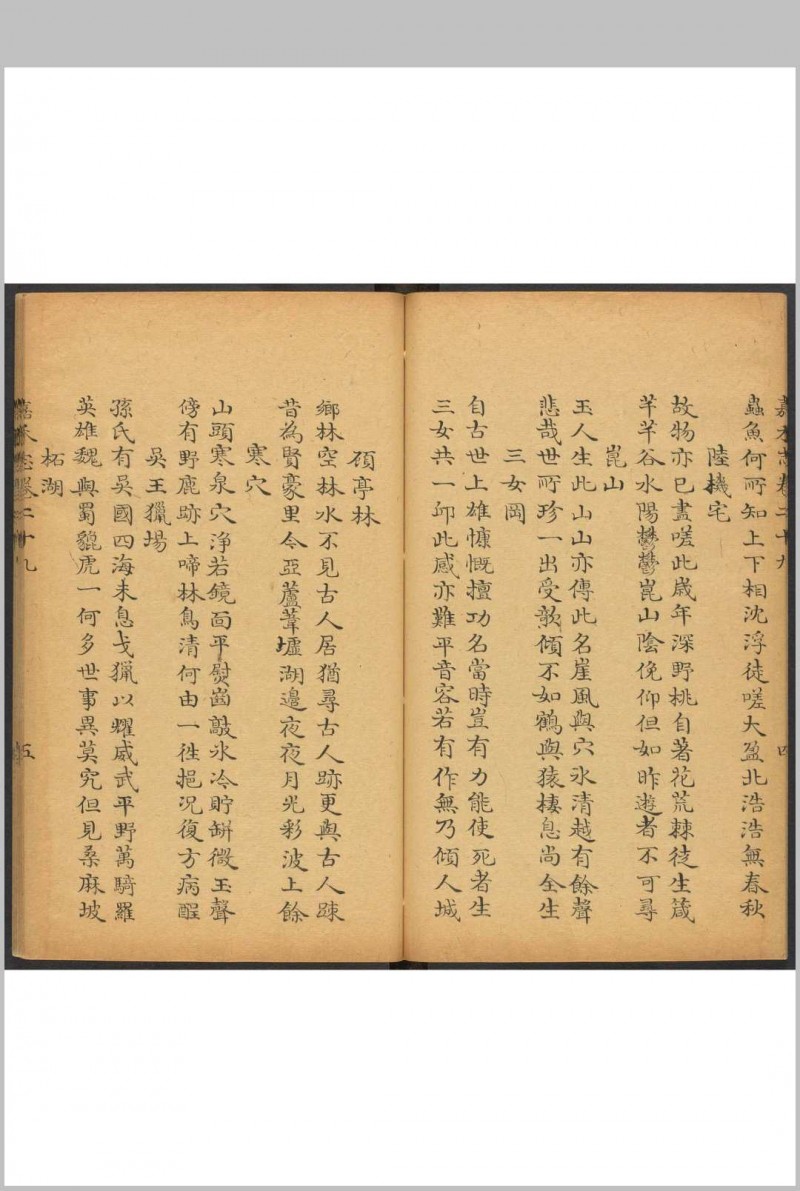 嘉禾志卷二十九
四
蟲魚何所知上下相沈浮徒嗟大盈北浩浩無春秋
陸機宅
故物亦已盡嗟此歲年深野桃自著花荒棘徒生箴
芊芊谷水陽鬱鬱崑山陰俛仰但如昨遊者不可尋
崑山
玉人生此山山亦傳此名崖風與穴氷清越有餘聲
悲哉世所珍一出受歌傾不如鶴與猿棲息尚全生
三女岡
自古世上雄慷慨擅功名當時豈有力能使死者生
三女共一邱此感亦難平音容若有作無乃傾人城
頋亭林
鄉林空林水不見古人居猶尋古人跡更與古人踈
昔為賢豪里今亞蘆葦墟湖邉夜夜月光彩波上餘
寒穴
山頭寒泉穴浄若鏡面平熨齒敲氷冷貯缾微玉聲
傍有野鹿跡上啼林鳥清何由一徃挹况復方病酲
吳王獵場
孫氏有吳國四海未息戈獵以耀威武平野萬騎羅
英雄魏與蜀貔虎一何多世事異莫究但見桑麻坡
柘湖
嘉禾志卷二十九
五